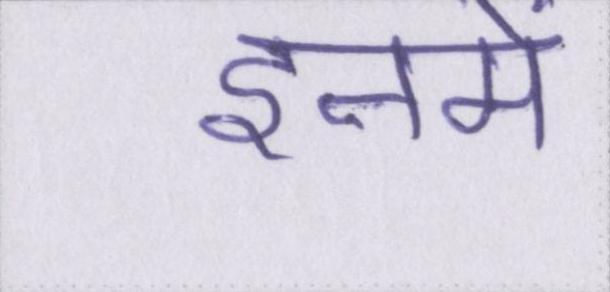 इनमें